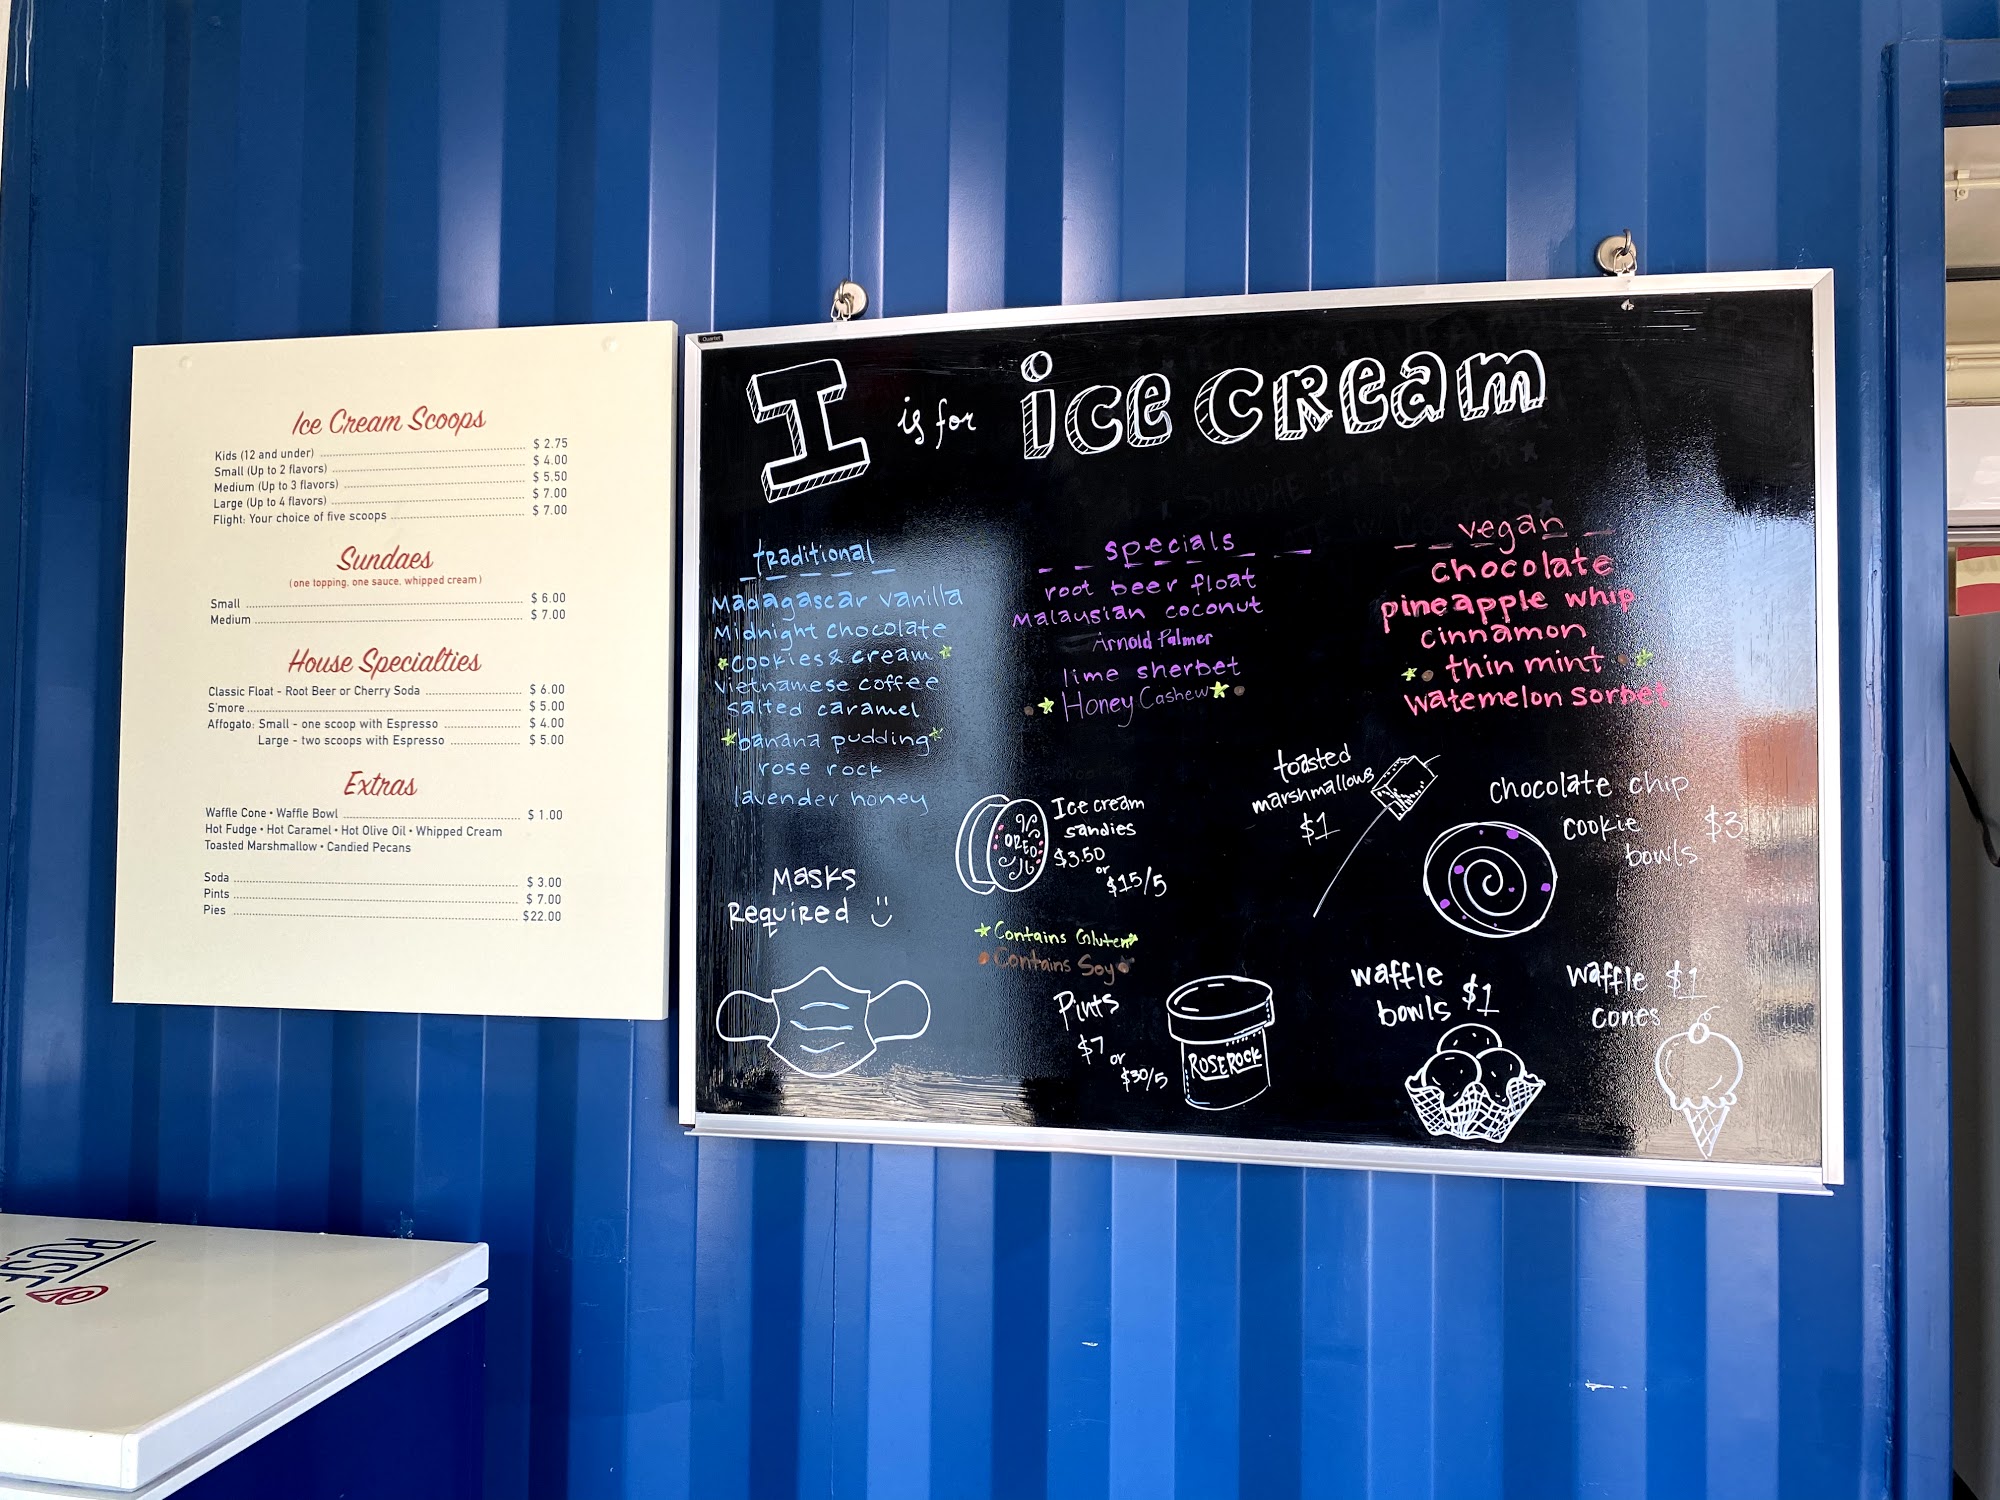 Ice Cream Scoops
Kids (12 and under) $ 2.75
Small (Up to 2 flavors) $ 4.00
Medium (Up to 3 flavors) $ 5.50
Large (Up to 4 flavors) $ 7.00
Flight: Your choice of five scoops $ 7.00
Sundaes
(one topping, one sauce, whipped cream)
Small $ 6.00
Medium $ 7.00
House Specialties
Classic Float - Root Beer or Cherry Soda $ 6.00
S'more $ 5.00
Affogato: Small - one scoop with Espresso $ 4.00
Large - two scoops with Espresso $ 5.00
Extras
Waffle Cone • Waffle Bowl $ 1.00
Hot Fudge • Hot Caramel • Hot Olive Oil • Whipped Cream
Toasted Marshmallow • Candied Pecans
Soda $ 3.00
Pints $ 7.00
Pies $22.00
Quartet
I is for ice cream
traditional
Madagascar vanilla
Midnight chocolate
cookies & cream
vietnamese coffee
salted caramel
banana pudding
rose rock
lavender honey
specials
root beer float
Malaysian coconut
Arnold Palmer
lime sherbet
Honey Cashew
vegan
chocolate
pineapple whip
cinnamon
thin mint
watemelon sorbet
Masks
Required
OREO
Ice cream
sandies
$3.50
or
$15/5
Contains Gluten
Contains Soy
Pints
$7
or
$30/5
ROSEROCK
toasted
marshmallows
$1
chocolate chip
cookie $3
bowls
waffle
bowls $1
waffle $1
cones
ROSE